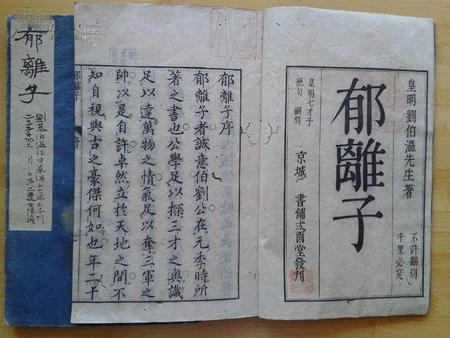 皇明劉伯溫先生著
不許翻刻
千里必究
郁離子
皇明七才子
絕句 嗣刻
京城 書鋪弍酉堂發刊
郁離子序
郁離子者誠意伯劉公在元季時所
著之書也公學足以探三才之奧識
足以達萬物之情氣足以奪三軍之
帥以是自許卓然立於天地之間不
知自視與古之豪傑何如也年二十
郁離子
郁離子